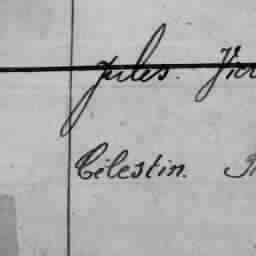 Jules.
Célestin.